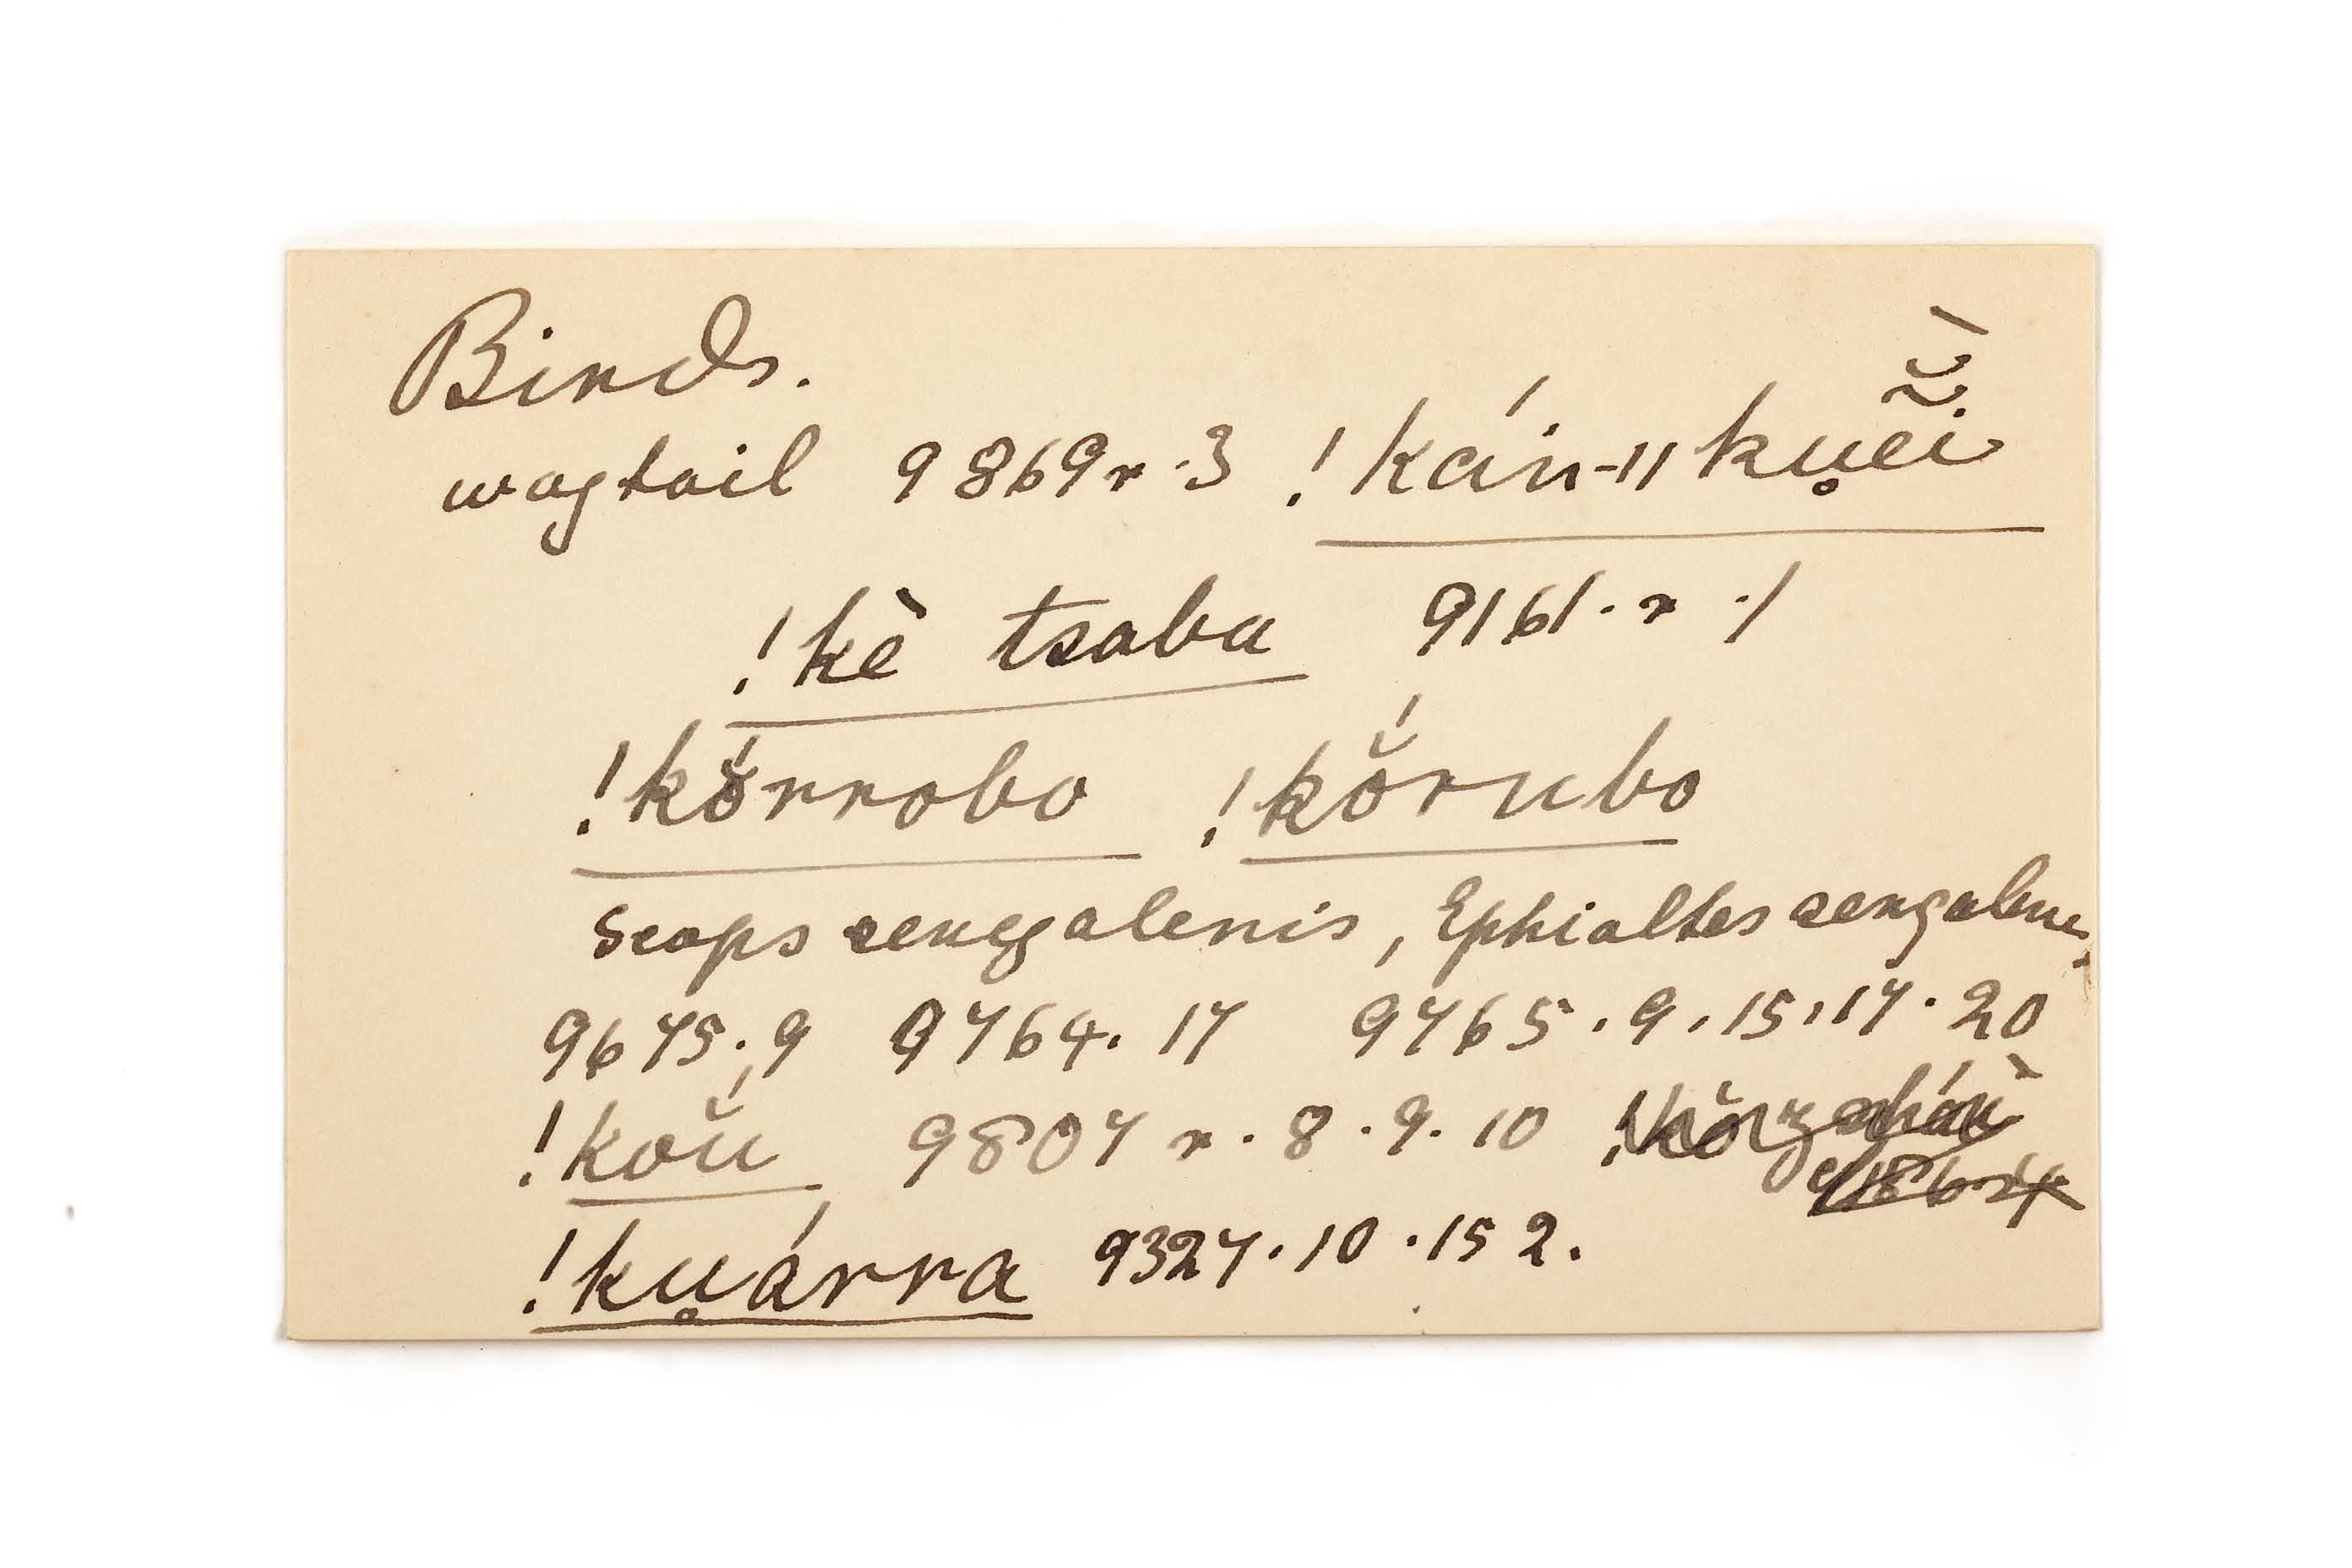 Birds.
wagtail 9869 r. 3 !kán-ǁku̥ẽ̯̆̀i
!kè tsaba 9161. r. 1
!kŏ́rrobo !kŏ́rubo
Scops senegalenis, Ephialtes
9675. 9 9764. 17 9765. 9. 15. 17. 20
!koŭ́ 9807 r. 8. 9. 10
!ku̥árra 9327. 10. 15 2.